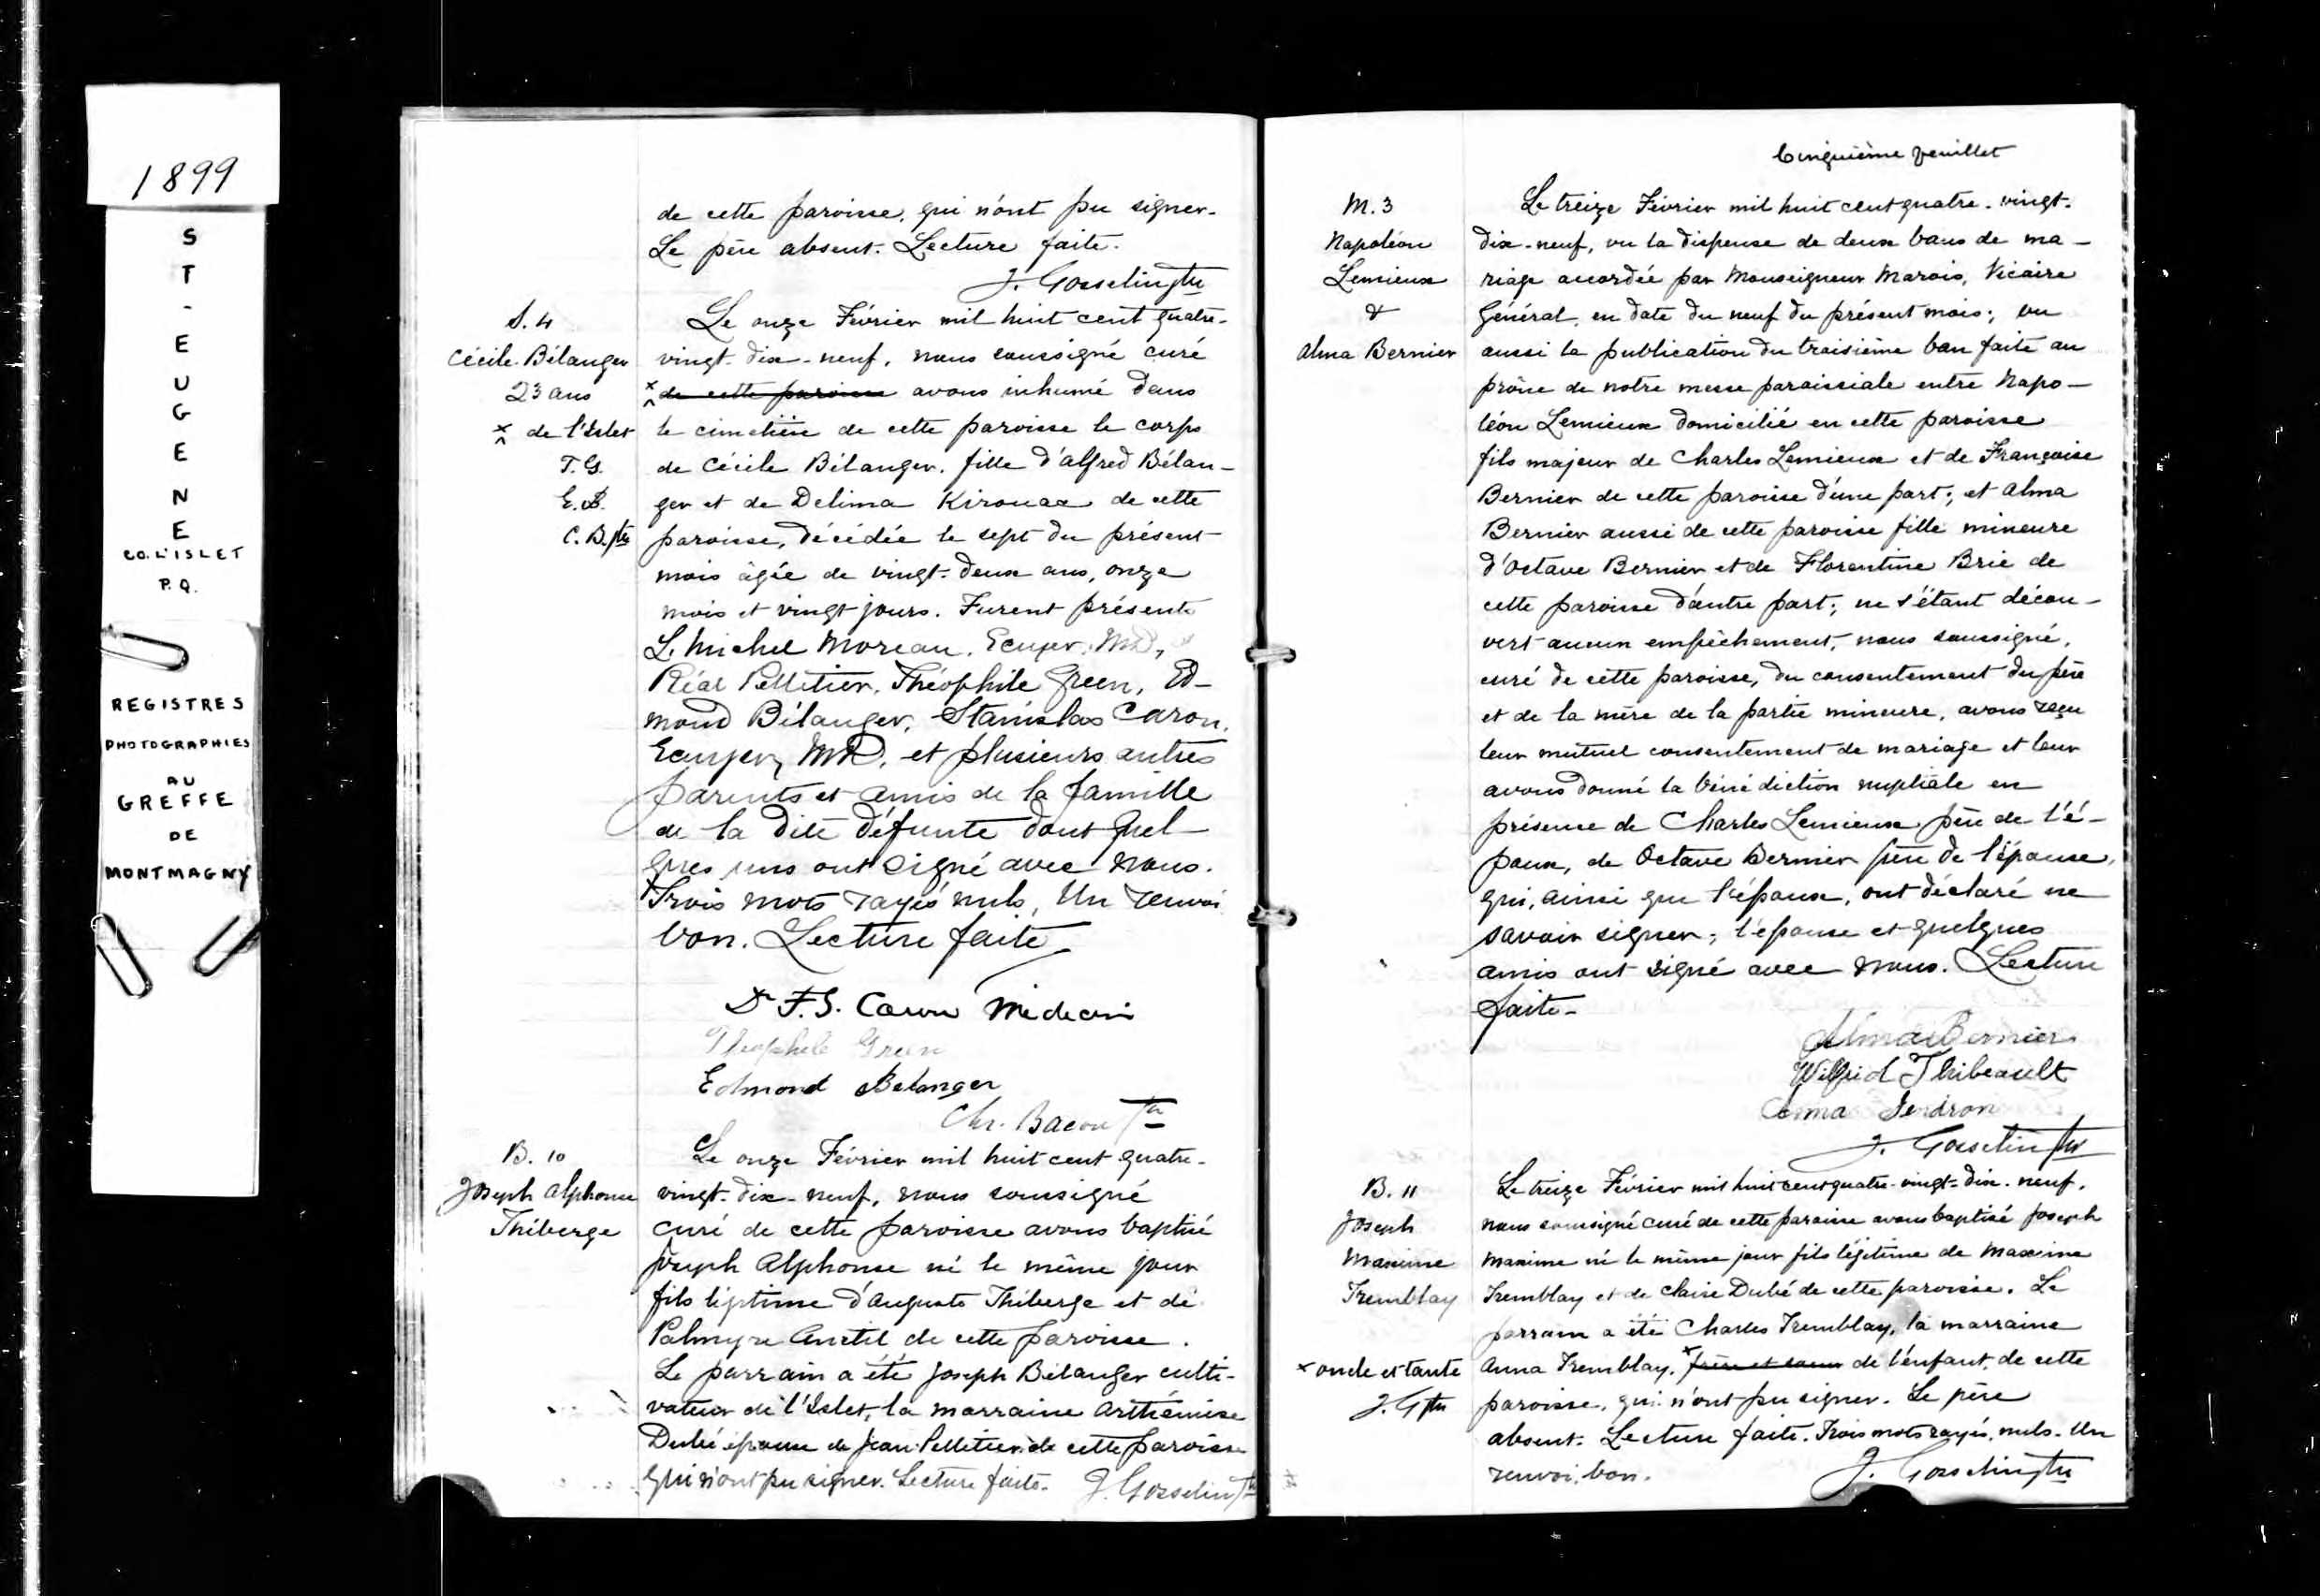 1899
ST-EUGENE
CO. L'ISLET
P.Q.
REGISTRES
PHOTOGRAPHIES
AU
GREFFE
DE
MONTMAGNY
de cette paroisse, qui n'ont pu signer.
Le père absent. Lecture faite.
J. Gosselin Ptre
S. 4
Cécile Bélanger
23 ans
x de l'Islet
T.G.
E.B.
C.B. ptre
Le onze Février mil huit cent quatre-
vingt-dix-neuf, nous soussigné curé
x de cette paroisse avons inhumé dans
le cimetière de cette paroisse le corps
de Cécile Bélanger, fille d'Alfred Bélan-
ger et de Delima Kirouac de cette
paroisse, décédée le sept du présent
mois âgée de vingt-deux ans, onze
mois et vingt jours. Furent présents
L. Michel Moreau, Ecuyer, MD,
Réal Pelletier, Théophile Green, Ed-
mond Bélanger, Stanislas Caron,
Ecuyer, MD, et plusieurs autres
parents et amis de la famille
de la dite défunte dont quel-
ques uns ont signé avec nous.
Trois mots rayés nuls, Un renvoi
bon. Lecture faite
Dr F.S. Caron Médecin
Théophile Green
Edmond Belanger
Chs. Bacon Ptre
B. 10
Joseph Alphonse
Thiberge
Le onze Février mil huit cent quatre-
vingt-dix-neuf, nous soussigné
curé de cette paroisse avons baptisé
Joseph Alphonse né le même jour
fils légitime d'Auguste Thiberge et de
Palmyre Anctil de cette paroisse.
Le parrain a été Joseph Bélanger culti-
vateur de l'Islet, la marraine Arthémise
Dubé épouse de Jean Pelletier de cette paroisse
qui n'ont pu signer. Lecture faite. J. Gosselin Ptre
Cinquième feuillet
M. 3
Napoléon
Lemieux
&
Alma Bernier
Le treize Février mil huit cent quatre-vingt-
dix-neuf, vu la dispense de deux bans de ma-
riage accordée par Monseigneur Marois, Vicaire
Général, en date du neuf du présent mois; vu
aussi la publication du troisième ban faite au
prône de notre messe paroissiale entre Napo-
léon Lemieux domicilié en cette paroisse
fils majeur de Charles Lemieux et de Françoise
Bernier de cette paroisse d'une part; et Alma
Bernier aussi de cette paroisse fille mineure
d'Octave Bernier et de Florentine Brie de
cette paroisse d'autre part; ne s'étant décou-
vert aucun empêchement, nous soussigné,
curé de cette paroisse, du consentement du père
et de la mère de la partie mineure, avons reçu
leur mutuel consentement de mariage et leur
avons donné la bénédiction nuptiale en
présence de Charles Lemieux père de l'é-
poux, de Octave Bernier père de l'épouse,
qui, ainsi que l'époux, ont déclaré ne
savoir signer; l'épouse et quelques
amis ont signé avec nous. Lecture
faite-
Alma Bernier
Wilfrid Thibeault
Anna Gendron
J. Gosselin Ptre
B. 11
Joseph
Maxime
Tremblay
x oncle et tante
J. G ptre
Le treize Février mil huit cent quatre-vingt-dix-neuf,
nous soussigné curé de cette paroisse avons baptisé Joseph
Maxime né le même jour fils légitime de Maxime
Tremblay et de Claire Dubé de cette paroisse. Le
parrain a été Charles Tremblay, la marraine
Anna Tremblay, x frère et soeur de l'enfant, de cette
paroisse, qui n'ont pu signer. Le père
absent. Lecture faite. Trois mots rayés, nuls. Un
renvoi, bon. J. Gosselin Ptre